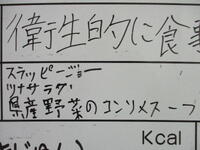 衛生的に食事
スラッピージョー
ツナサラダ
県産野菜のコンソメスープ
Kcal